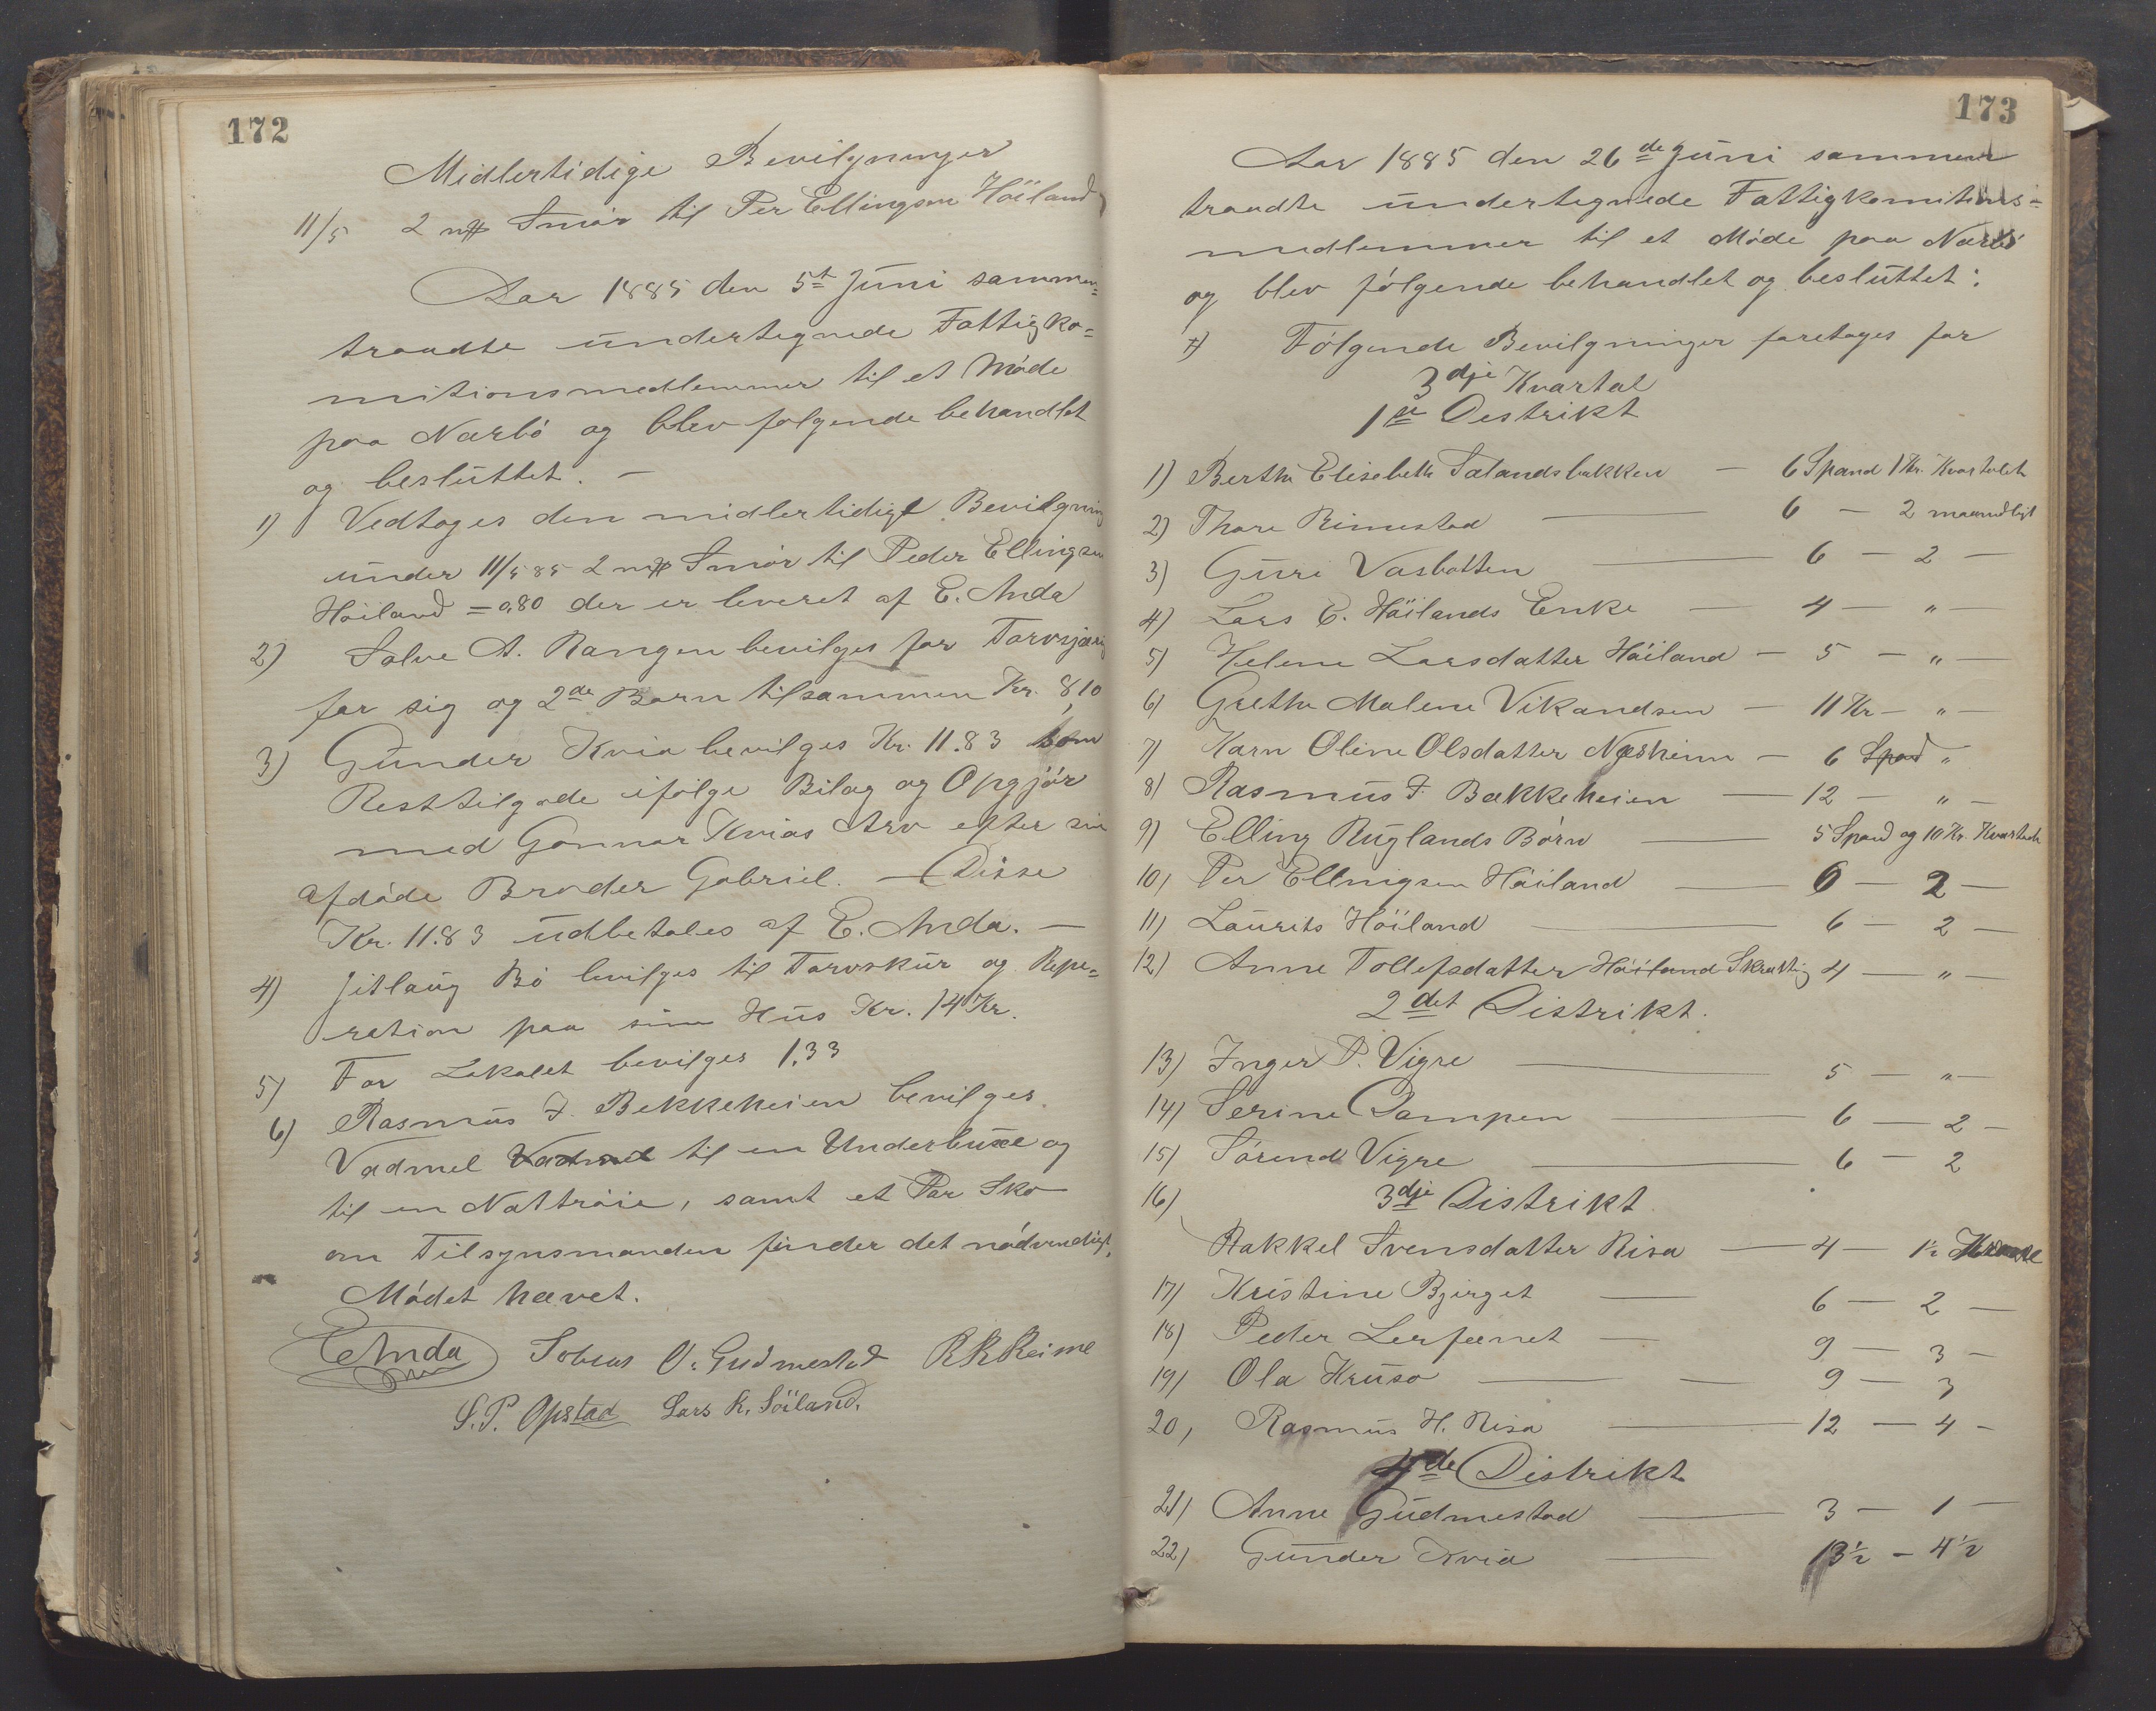 172
Midlertidige Bevilgninger
11/5 2 Smör til Per Ellingsen Höiland
Aar 1885 den 5t Juni sammen=
traadte undertegnede Fattigko=
mitionsmedlemmer til et Möde
paa Nærbö og blev følgende behandlet
og besluttet. —
1) Vedtages den midlertidige Bevilgning
under 11/5 85 2 Smör til Peder Ellingsen
Höiland = 0,80 der er leveret af E. Anda
2) Salve A. Rangen bevilges for Torvskjæring
for sig og 2de Børn tilsammen Kr. 8,10
3) Gunder Kvia bevilges Kr. 11.83 som
Resttilgode ifölge Bilag og Opgjör
med Gonnar Kvias Arv efter sin
afdöde Broder Gabriel. — Disse
Kr. 11.83 udbetales af E. Anda. —
4) Jitlaug Bö bevilges til Torvskur og Repe=
ration paa sine Hus Kr. 14 Kr.
5) For Lokalet bevilges 1.33
6) Rasmus J. Bekkeheien bevilges
Vadmel Vadmel til en Underbuxe og
til en Nattröie, samt et Par Sko
om Tilsynsmanden finder det nödvendigt.
Mödet hævet.
E Anda Tobias O. Gudmestad R R Reime
S. P. Opstad Lars K. Söiland.
173
Aar 1885 den 26de Juni sammen
traadte undertegnede Fattigkomitions=
medlemmer til et Möde paa Nærbö
og blev fölgende behandlet og besluttet:
Fölgende Bevilgninger foretages for
3dje Kvartal
1ste Distrikt
1) Bertha Elisebeth Salandsbakken — 6 Spand 1 Kr. Kvartalet
2) Thore Rimestad — 6 — 2 maanedligt
3) Guri Vasbotten — 6 — 2 —
4) Lars E. Höilands Enke — 4 — " —
5) Helene Larsdatter Höiland — 5 — " —
6) Grethe Malene Vikandsen — 11 Kr — " —
7) Karn Oline Olsdatter Næsheim — 6 Spand "
8) Rasmus J. Bakkeheien — 12 — " —
9) Elling Ruglands Börn — 5 Spand og 10 Kr. Kvartalet
10) Per Ellingsen Höiland — 6 — 2 —
11) Laurits Höiland — 6 — 2 —
12) Anne Tollefsdatter Höiland Skrutig 4 — " —
2det Distrikt.
13) Inger P. Vigre — 5 — " —
14) Serine Dampen — 6 — 2 —
15) Sörend Vigre — 6 — 2
16) 3dje Distrikt
Rakkel Svensdatter Risa — 4 — 1½ Krone
17) Kristine Bjerget — 6 — 2 —
18) Peder Lerfænet — 9 — 3 —
19) Ola Kruso — 9 — 3
20) Rasmus H. Risa — 12 — 4 —
4de Distrikt
21) Anne Gudmestad — 3 — 1 —
22) Gunder Kvia — 13½ — 4½